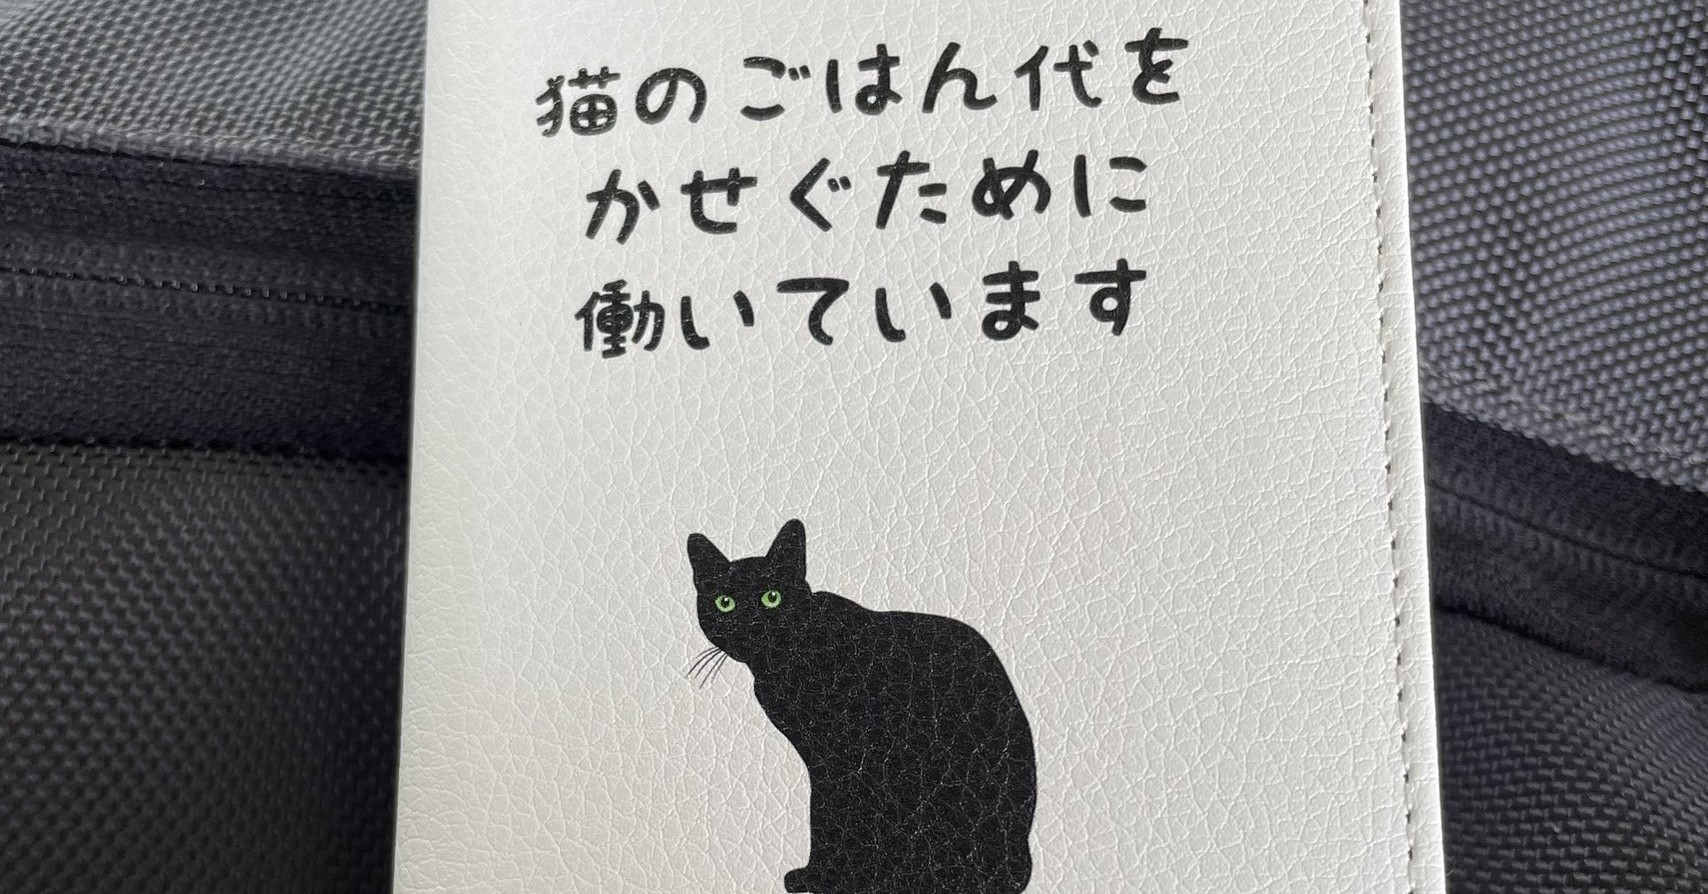 猫のごはん代を
かせぐために
働いています